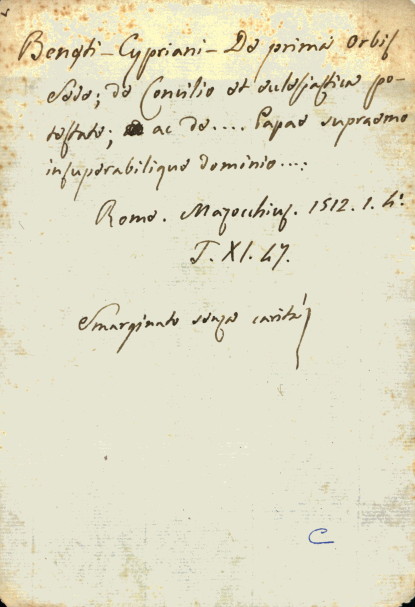 Beneti - Cypriani - De prima orbis
Sede; de Concilio et eclesjastica po-
testate; ac de.... Papae supraemo
insuperabilique dominio...:
Rome. Mazochius. 1512. 1. 4°
T. XI. 47.
Smarginato senza carità
C